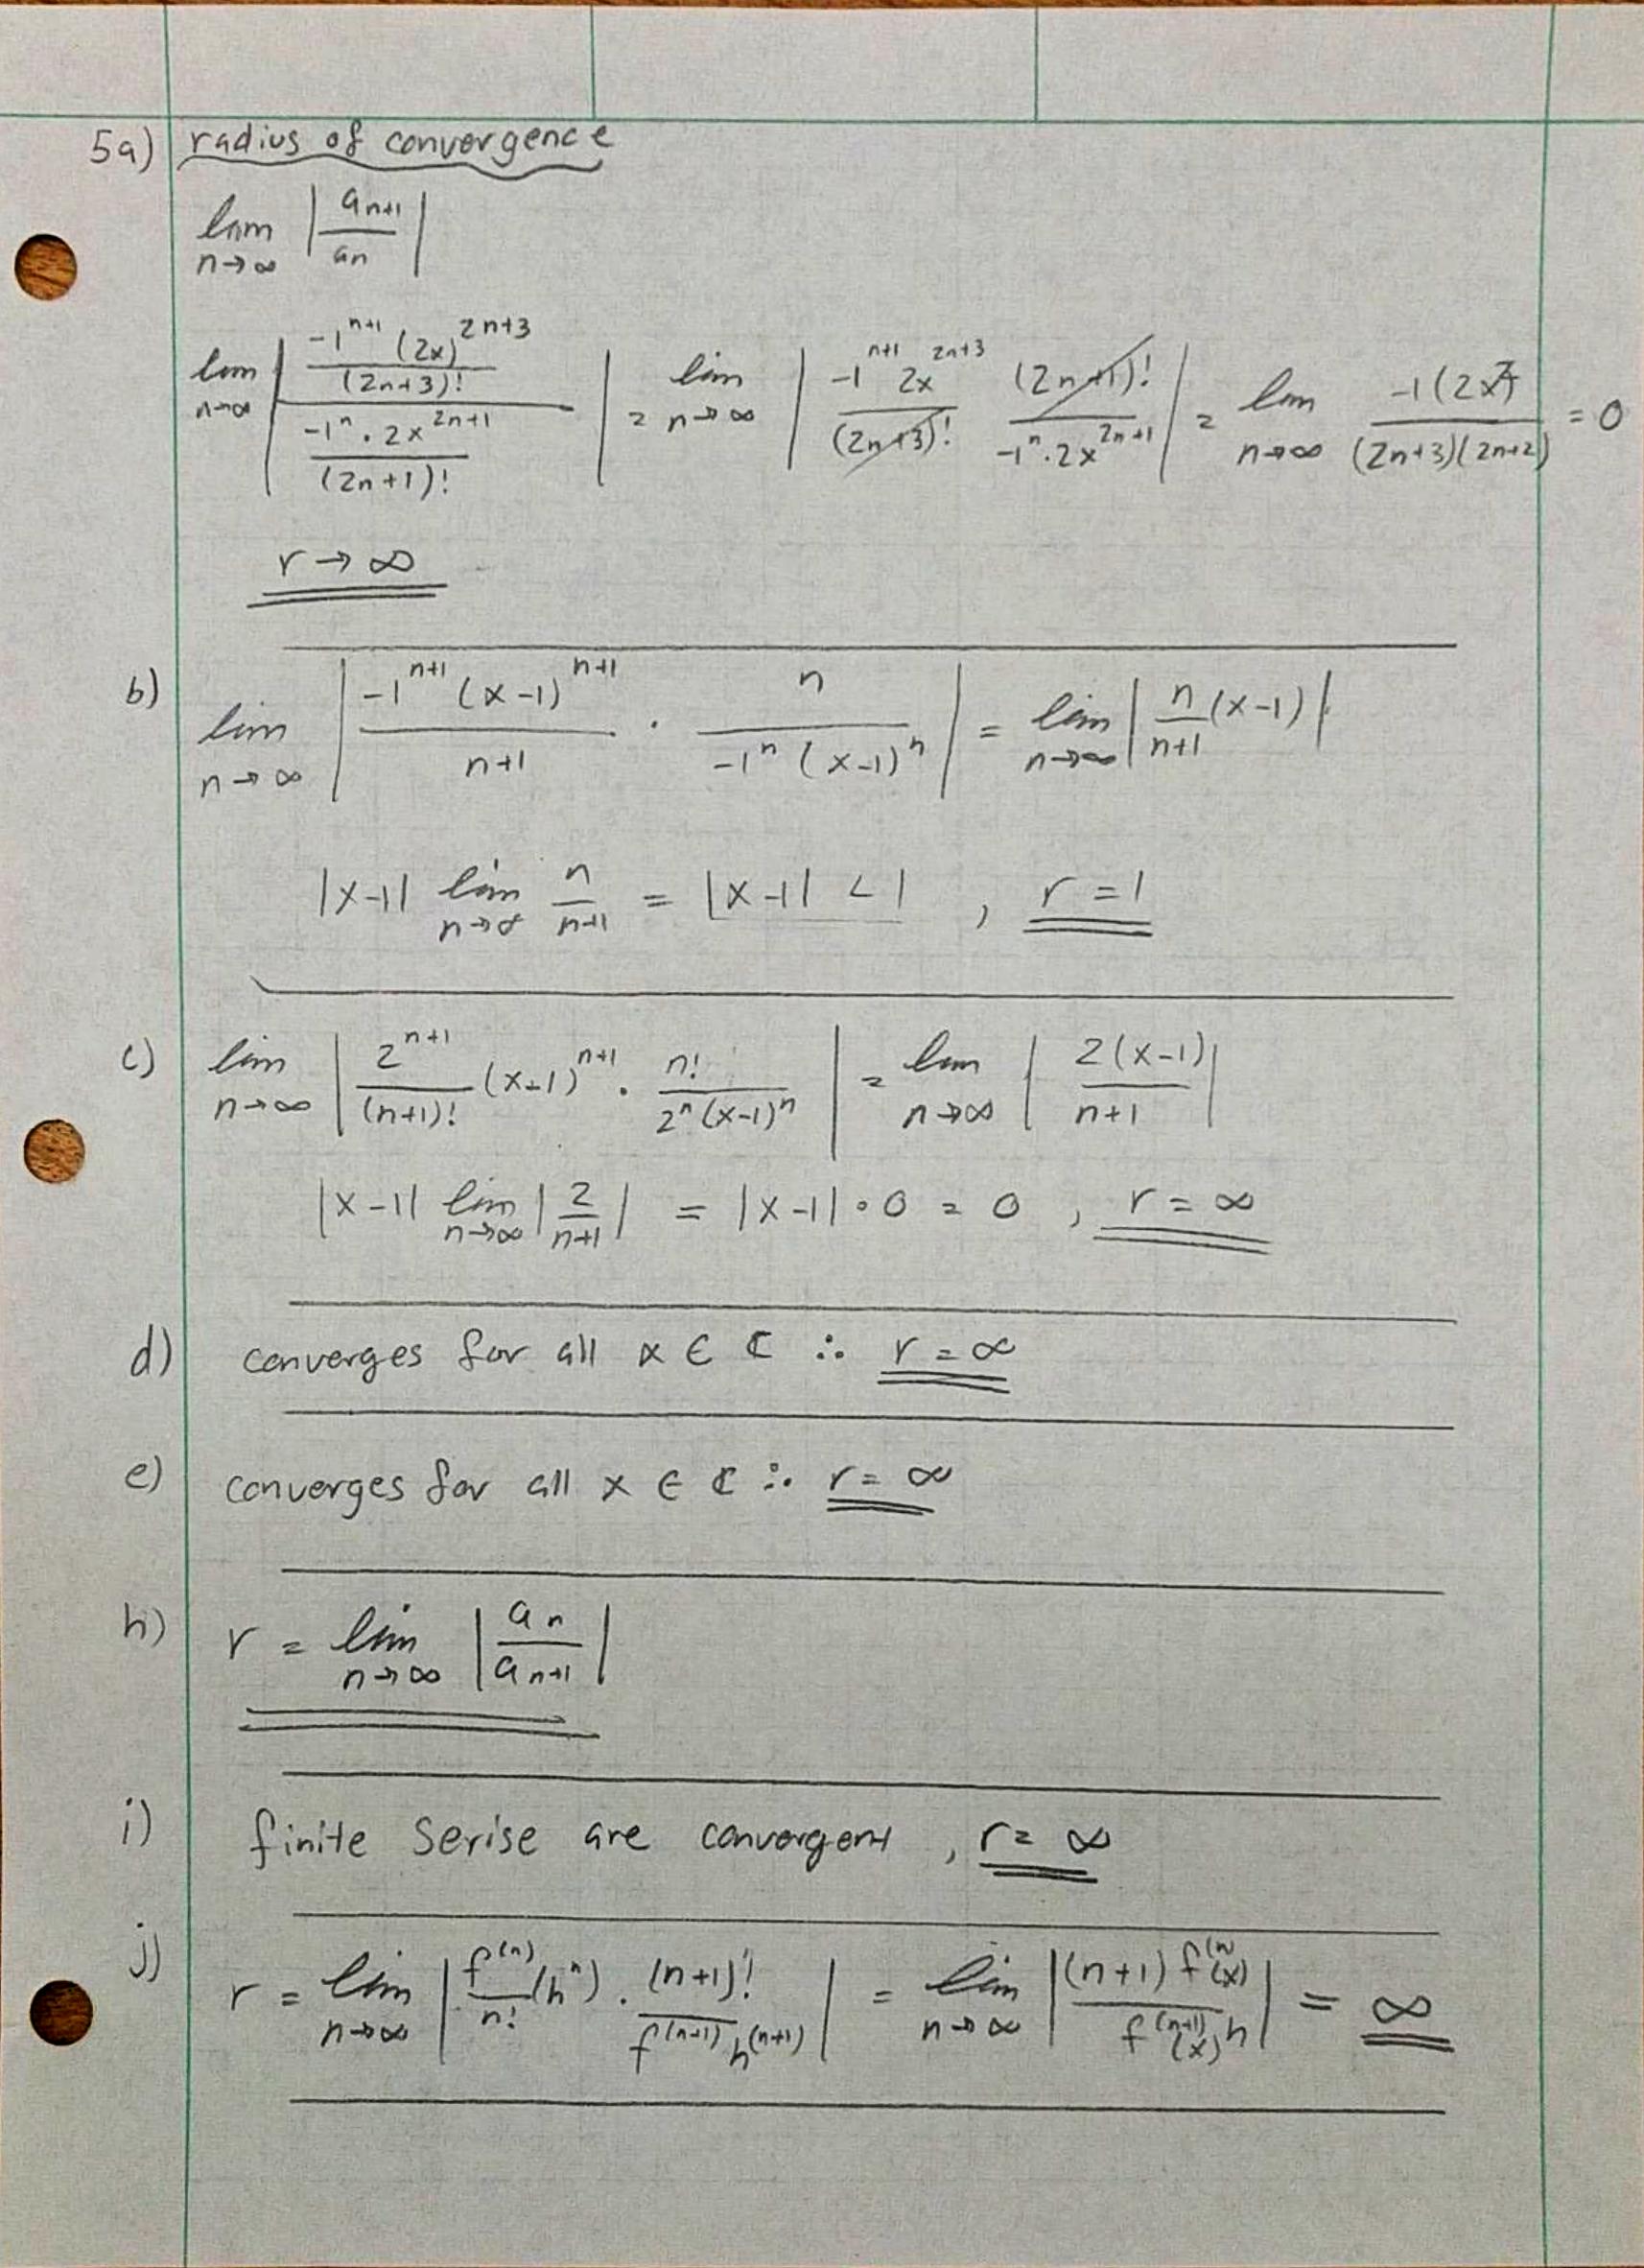 5a) radius of convergence
lim n→∞ |a_{n+1}/a_n|
lim n→∞ |(-1^{n+1} (2x)^{2n+3}/(2n+3)!)/(-1^n · 2x^{2n+1}/(2n+1)!)| = lim n→∞ |-1^{n+1} 2x^{2n+3}/(2n+3)! (2n+1)!/-1^n · 2x^{2n+1}| = lim n→∞ -1(2x)^2/(2n+3)(2n+2) = 0
r → ∞
b) lim n→∞ |-1^{n+1} (x-1)^{n+1}/n+1 · n/-1^n (x-1)^n| = lim n→∞ |n/n+1 (x-1)|
|x-1| lim n→∞ n/n+1 = |x-1| < 1 , r = 1
c) lim n→∞ |2^{n+1}/(n+1)! (x-1)^{n+1} · n!/2^n (x-1)^n| = lim n→∞ |2(x-1)/n+1|
|x-1| lim n→∞ |2/n+1| = |x-1| · 0 = 0 , r = ∞
d) converges for all x ∈ ℂ ∴ r = ∞
e) converges for all x ∈ ℂ ∴ r = ∞
h) r = lim n→∞ |a_n/a_{n+1}|
i) finite Serise are convergent , r = ∞
j) r = lim n→∞ |f^{(n)}/n! (h^n) · (n+1)!/f^{(n+1)} h^{(n+1)}| = lim n→∞ |(n+1) f^{(n)}(x)/f^{(n+1)}(x) h| = ∞